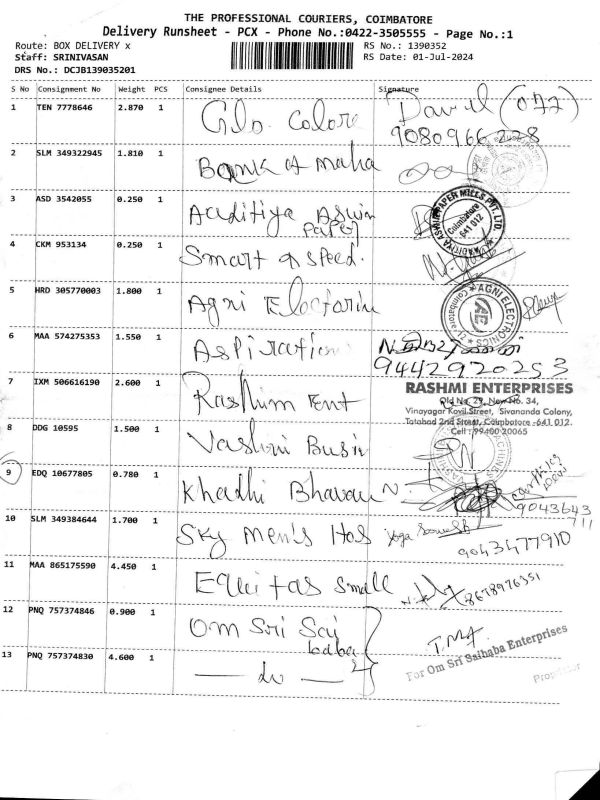 THE PROFESSIONAL COURIERS, COIMBATORE
Delivery Runsheet - PCX - Phone No.:0422-3505555 - Page No.:1
Route: BOX DELIVERY x RS No.: 1390352
Staff: SRINIVASAN RS Date: 01-Jul-2024
DRS No.: DCJB139035201
S No Consignment No Weight PCS Consignee Details Signature
1 TEN 7778646 2.870 1 Glo. Colore David (072)
9080966228
2 SLM 349322945 1.810 1 Bank of maha
3 ASD 3542055 0.250 1 Aaditiya Aswin
Paper
AADITIYA ASHWIN PAPER MILLS PVT. LTD.
Coimbatore
641 012
4 CKM 953134 0.250 1 Smart & speed.
5 HRD 305770003 1.800 1 Agni Electorin
AGNI ELECTRONICS
Coimbatore
6 MAA 574275353 1.550 1 Aspiration
9442920253
7 IXM 506616190 2.600 1 Rashmi Ent
RASHMI ENTERPRISES
Old No. 29, New No. 34,
Vinayagar Kovil Street, Sivananda Colony,
Tatabad 2nd Street, Coimbatore - 641 012.
Cell : 99400 20065
8 DDG 10595 1.500 1 Vashni Busin
9 EDQ 10677805 0.780 1 Khadhi Bhavan
9043643
711
10 SLM 349384644 1.700 1 Sky men's Hos Yoga
9043477910
11 MAA 865175590 4.450 1 Equitas small 8678976351
12 PNQ 757374846 0.900 1 Om Sri Sai
13 PNQ 757374830 4.600 1 — do —
For Om Sri Saibaba Enterprises
Proprietor